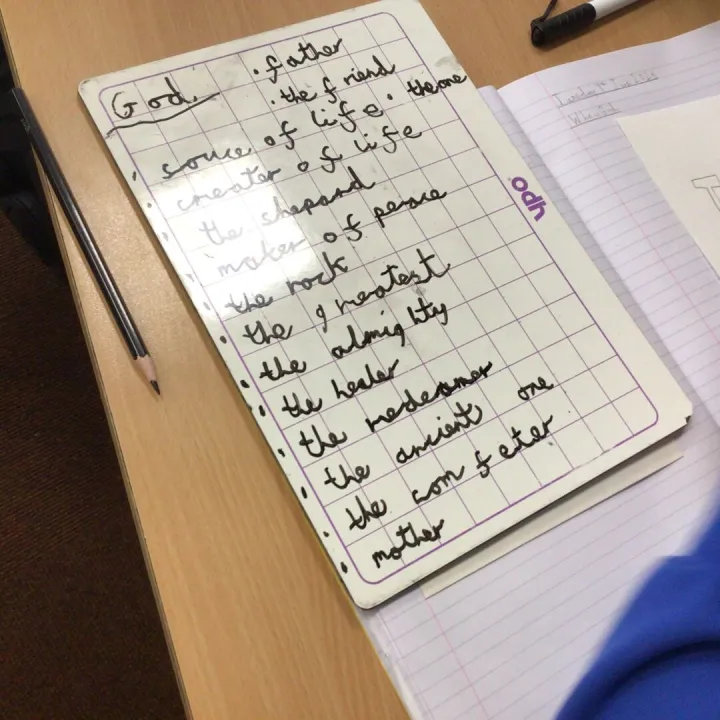 God.
· father
· the friend
· the one
· souce of life
· creater of life
· the shepard
· maker of peace
· the rock
· the greatest
· the almighty
· the healer
· the redeamer
· the ancient one
· the comfeter
· mother
odh